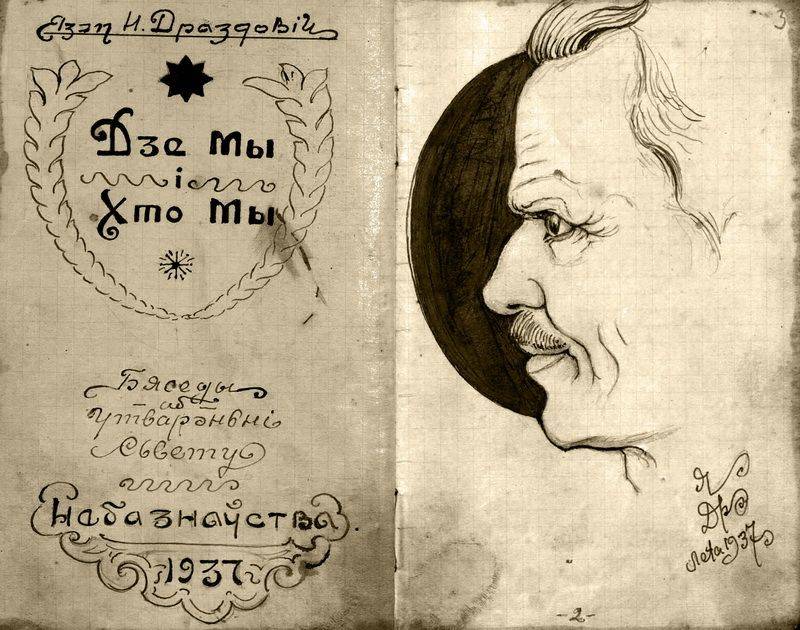 Язэп Н. Драздовіч
Дзе мы
і
Хто мы
Бяседы
аб
утварэньні
Сьвету
Небазнаўства.
1937
3
Я
Др
Лета 1937
-2-